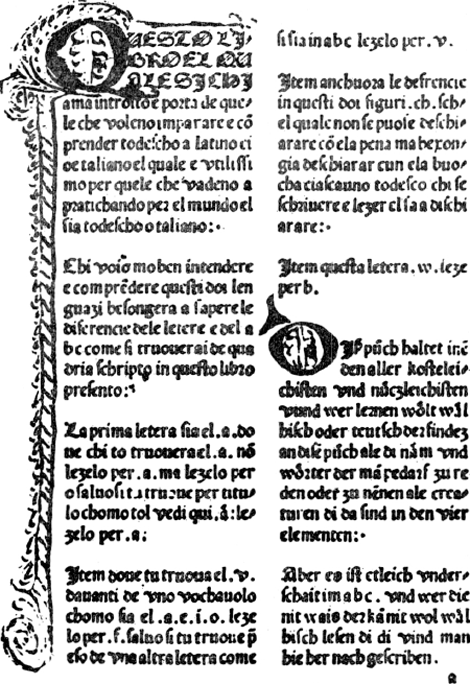 QUESTO LI⸗
BRO EL QU
ALE SI CHI
ama introito e porta de que⸗
le che voleno imparare e cõ
prender todescho a latino ci
oe taliano el quale e vtilissi
mo per quele che vadeno a
pratichando per el mundo el
sia todescho o taliano:·
Chi voio mo ben intendere
e comprẽdere questi doi len
guazi besongera a sapere le
diferencie dele letere e del a
b c come si truouerai de qua
dria scripto in questo libro
presento:·
La prima letera sia el .a. do
ue chi to truouera el .a. nõ
lezelo per .a. ma lezelo per
o saluo si tu truoue per tutu⸗
lo chomo tol vedi qui .å: le⸗
zelo per .a:
Item doue tu truoua el .v.
dauanti de vno vochauolo
chomo sia el .a.e.i.o. leze
lo per .f. saluo si tu truoue p̃
eso de vna altra letera come
si sia in a b c lezelo per .v.
Item anchuora le defrencie
in questi doi figuri .ch. sch⸗
el quale non se puole deschi⸗
arare cõ ela pena ma bexon⸗
gia deschiarar cun ela buo⸗
cha ciascauno todesco chi se
schriuere e lezer el sa a dischi
arare:·
Item questa letera .w. leze
per b.
DJß půch haltet in ẽ
den aller kostelei⸗
chisten vnd nůczleichisten
vnnd wer leznen wölt wäl
bisch oder teutsch der findez
an diſe půch ale di näm vnd
wörter der mã pedarf zu re
den oder zu nẽnen ale crea⸗
turen di da sind in den vier
elementen:·
Aber es ist etleich vnder⸗
schait im a b c . vnd wer die
nit wais der kã nit wol wäl
bisch lesen di di vind man
hie ber nach geschriben.
a